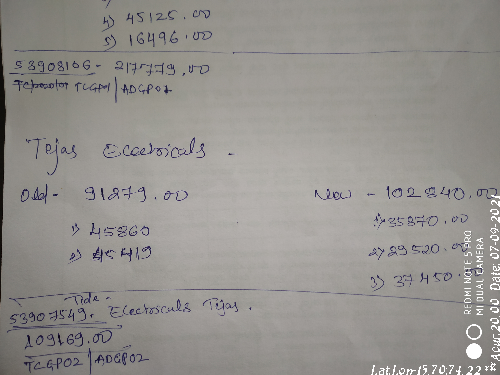 4) 45125.00
5) 16496.00
53908166 - 217779.00
TCGP01 | ADGP02
Tejas Ecectricals -
Old - 91279.00
1) 45860
2) 45419
New - 102840.00
1) 35870.00
2) 29520.00
3) 37450
Tide
53907549. Electricals Tejas.
109169.00
TCGP02 | ADGP02
REDMI NOTE 5 PRO
MI DUAL CAMERA
Date: 07-09-202
Lat Lon-15.70:74.22**